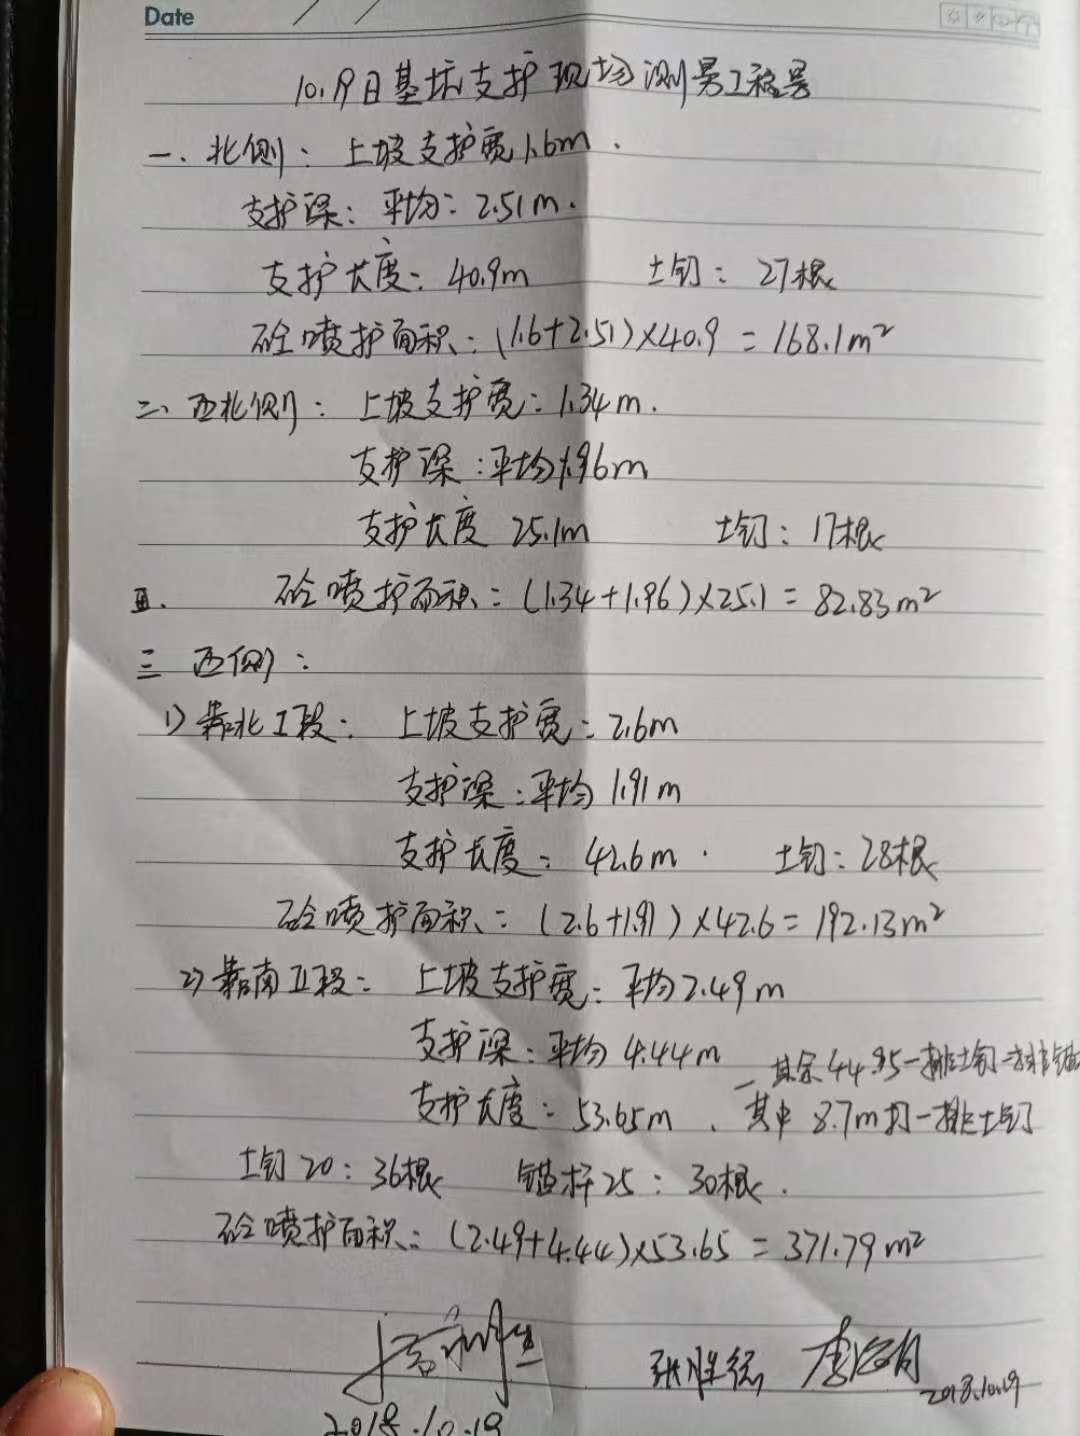 Date
10.19日基坑支护现场测量工程量
一、北侧：上坡支护宽1.6m．
支护深：平均：2.51m．
支护长度：40.9m 土钉：27根
砼喷护面积：(1.6+2.51)×40.9=168.1m²
二、西北侧：上坡支护宽：1.34m．
支护深：平均1.96m
支护长度 25.1m 土钉：17根
砼喷护面积：(1.34+1.96)×25.1=82.83m²
三 西侧：
1）靠北工段：上坡支护宽：2.6m
支护深：平均1.91m
支护长度：42.6m． 土钉：28根
砼喷护面积：(2.6+1.91)×42.6=192.13m²
2）靠南工段：上坡支护宽：平均2.49m
支护深：平均4.44m
其余44.95一排土钉一排锚
支护长度：53.65m、其中8.7m打一排土钉
土钉20：36根 锚杆25：30根．
砼喷护面积：(2.49+4.44)×53.65=371.79m²
2018.10.19
2018.10.19